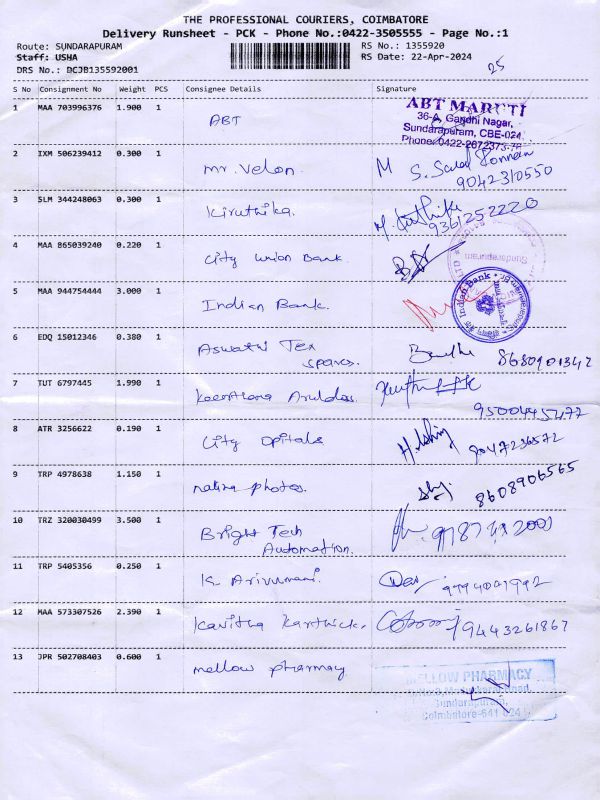 THE PROFESSIONAL COURIERS, COIMBATORE
Delivery Runsheet - PCK - Phone No.:0422-3505555 - Page No.:1
Route: SUNDARAPURAM RS No.: 1355920
Staff: USHA RS Date: 22-Apr-2024
DRS No.: DCJB135592001 25
S No Consignment No Weight PCS Consignee Details Signature
1 MAA 703996376 1.900 1 ABT
ABT MARUTI
36-A, Gandhi Nagar,
Sundarapuram, CBE-024
Phone:0422-2672373,
2 IXM 506239412 0.300 1 mr. Velon. M S.
9042310550
3 SLM 344248063 0.300 1 Kiruthika. 9361252220
4 MAA 865039240 0.220 1 City Union Bank.
Sundarapuram
5 MAA 944754444 3.000 1 Indian Bank.
Indian Bank
6 EDQ 15012346 0.380 1 Aswathi Tex spares. 8680901342
7 TUT 6797445 1.990 1 Keerthana
9500445477
8 ATR 3256622 0.190 1 City Opticals 9047236572
9 TRP 4978638 1.150 1 native photos. 8608906565
10 TRZ 320030499 3.500 1 Bright Tech
Automation.
11 TRP 5405356 0.250 1 K. Arivumani. 9994001992
12 MAA 573307526 2.390 1 Kavitha Karthick. 9443261867
13 JPR 502708403 0.600 1 mellow pharmacy
MELLOW PHARMACY
Road,
Sundarapuram,
Coimbatore-641 024